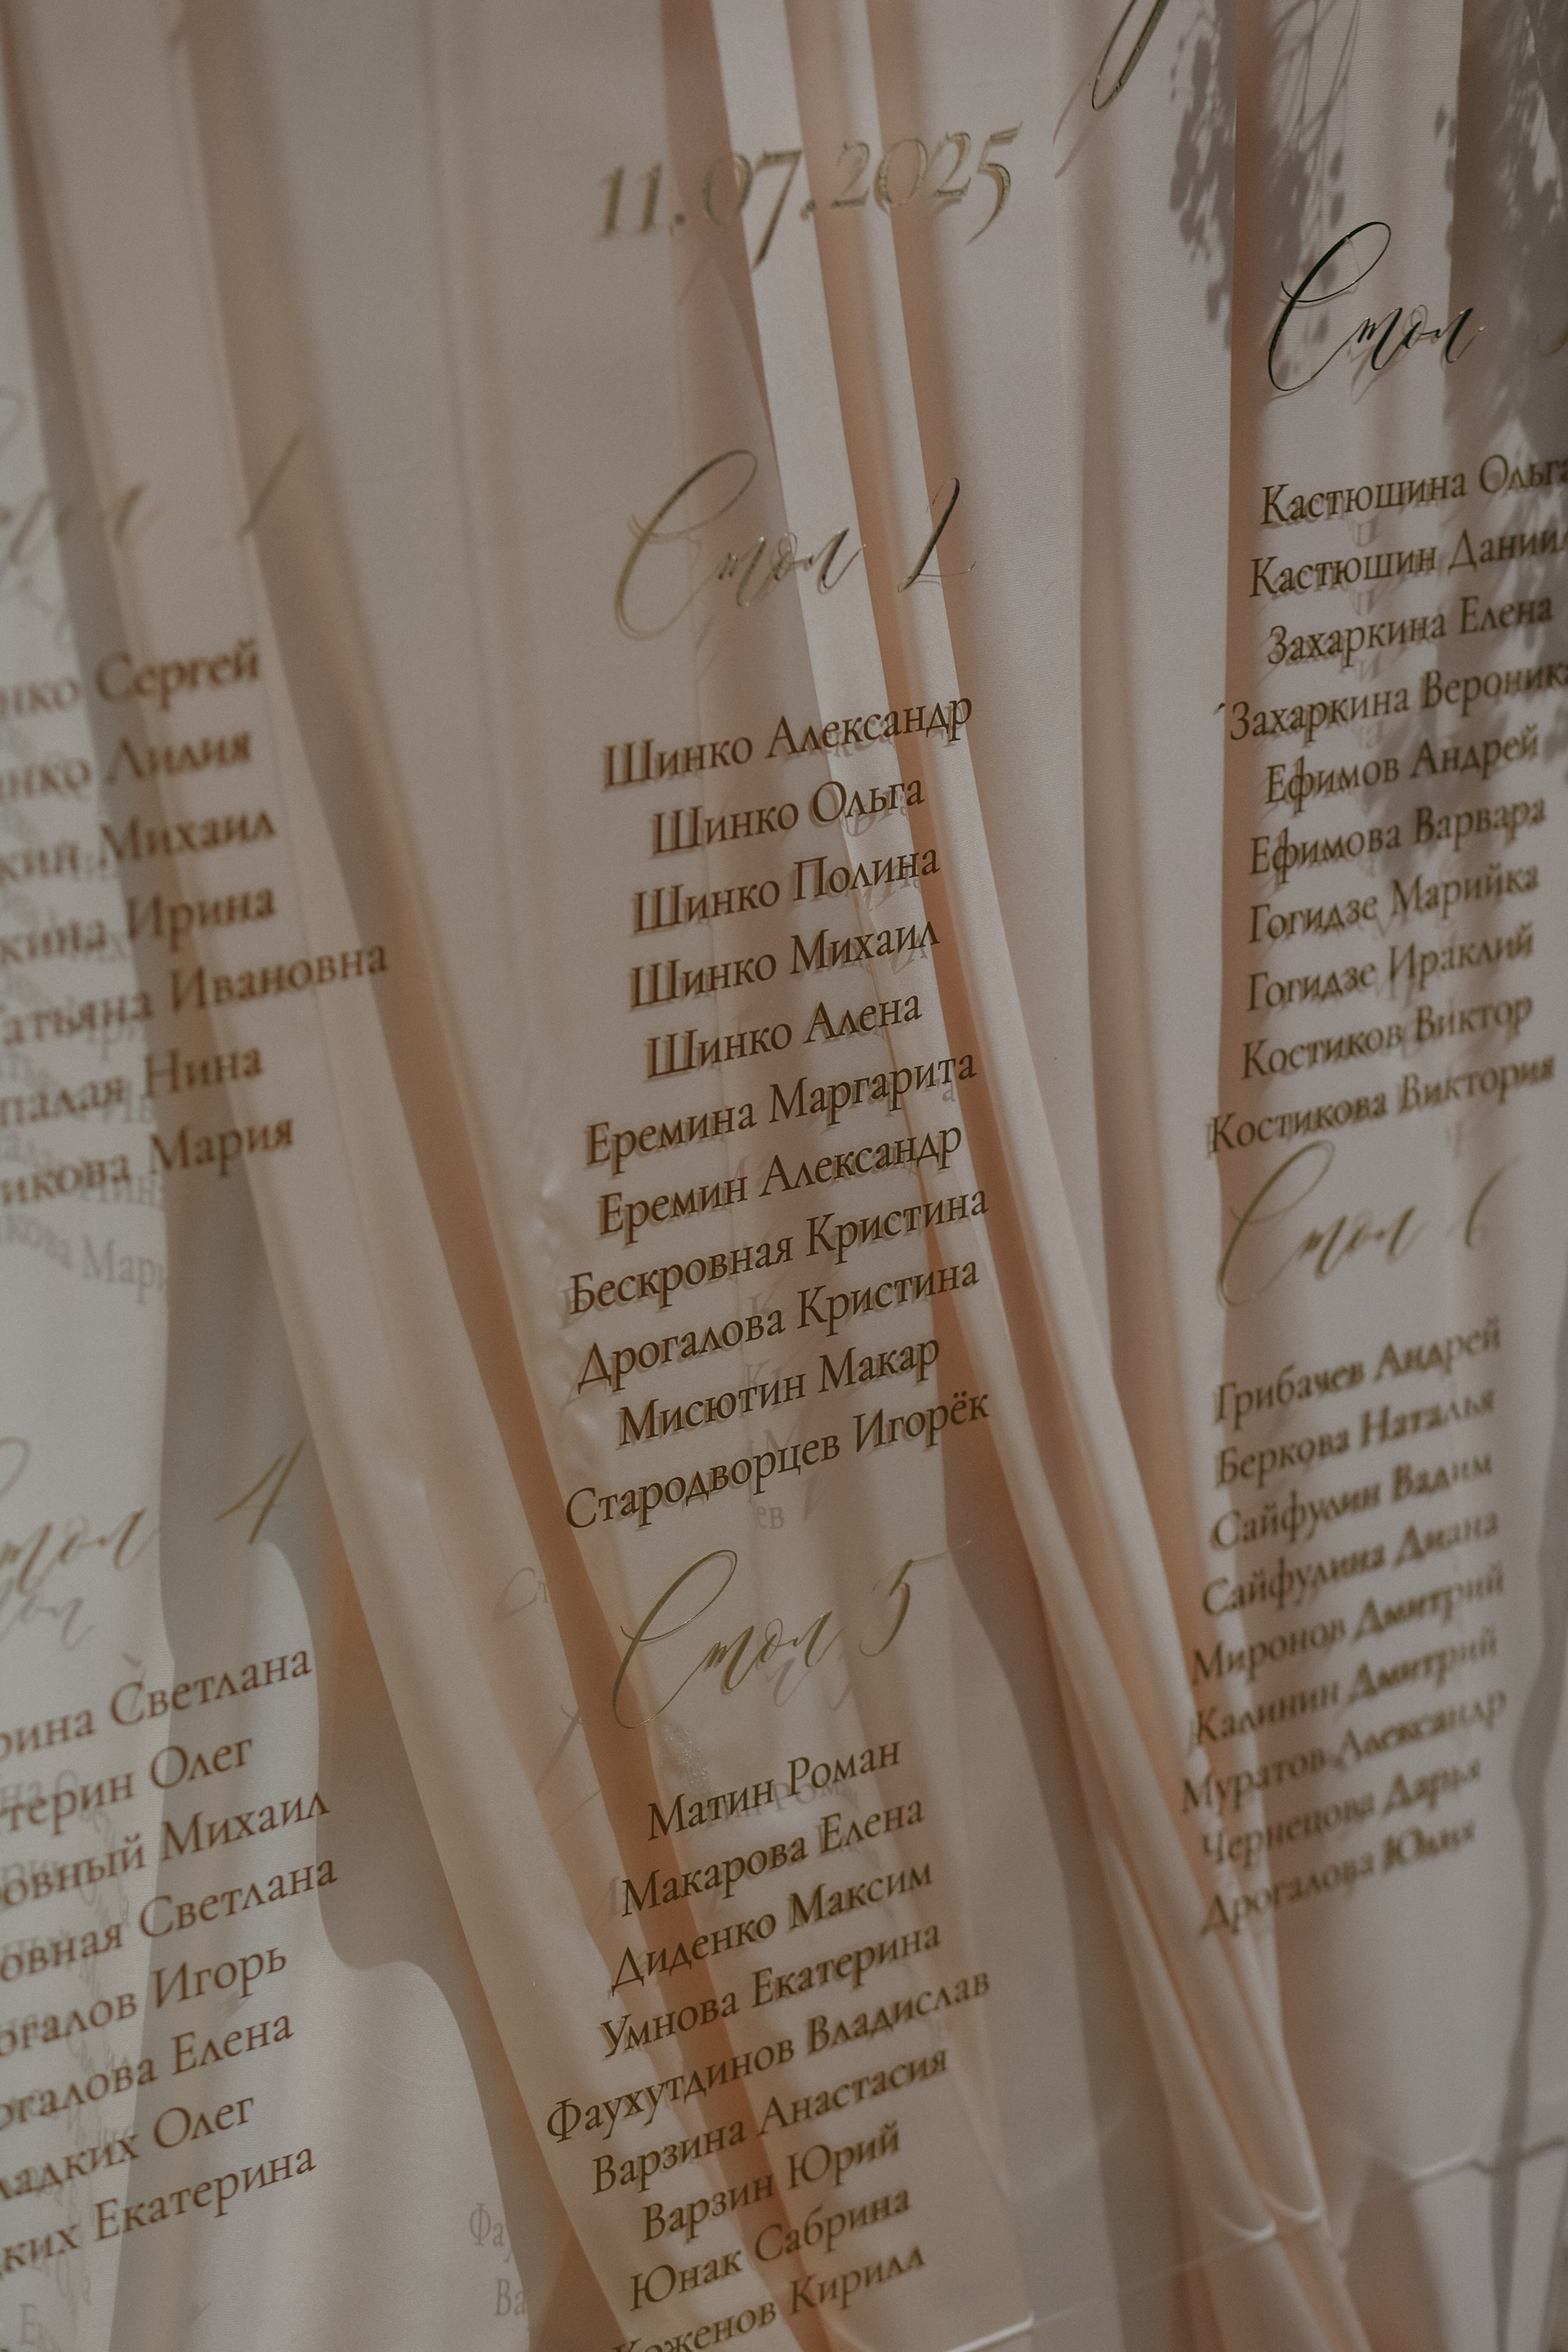 11.07.2025
Стол 1
Сергей
Лилия
Михаил
Ирина
Татьяна Ивановна
Нина
Мария
Стол 2
Шинко Александр
Шинко Ольга
Шинко Полина
Шинко Михаил
Шинко Алена
Еремина Маргарита
Еремин Александр
Бескровная Кристина
Дрогалова Кристина
Мисютин Макар
Стародворцев Игорёк
Стол
Кастюшина Ольга
Кастюшин Даниил
Захаркина Елена
Захаркина Вероника
Ефимов Андрей
Ефимова Варвара
Гогидзе Марийка
Гогидзе Ираклий
Костиков Виктор
Костикова Виктория
Стол 4
Светлана
Олег
Михаил
Светлана
Игорь
Елена
Олег
Екатерина
Стол 5
Матин Роман
Макарова Елена
Диденко Максим
Умнова Екатерина
Фаухутдинов Владислав
Варзина Анастасия
Варзин Юрий
Юнак Сабрина
Коженов Кирилл
Стол 6
Грибачев Андрей
Беркова Наталья
Сайфулин Вадим
Сайфулина Диана
Миронов Дмитрий
Калинин Дмитрий
Муратов Александр
Чернецова Дарья
Дрогалова Юлия